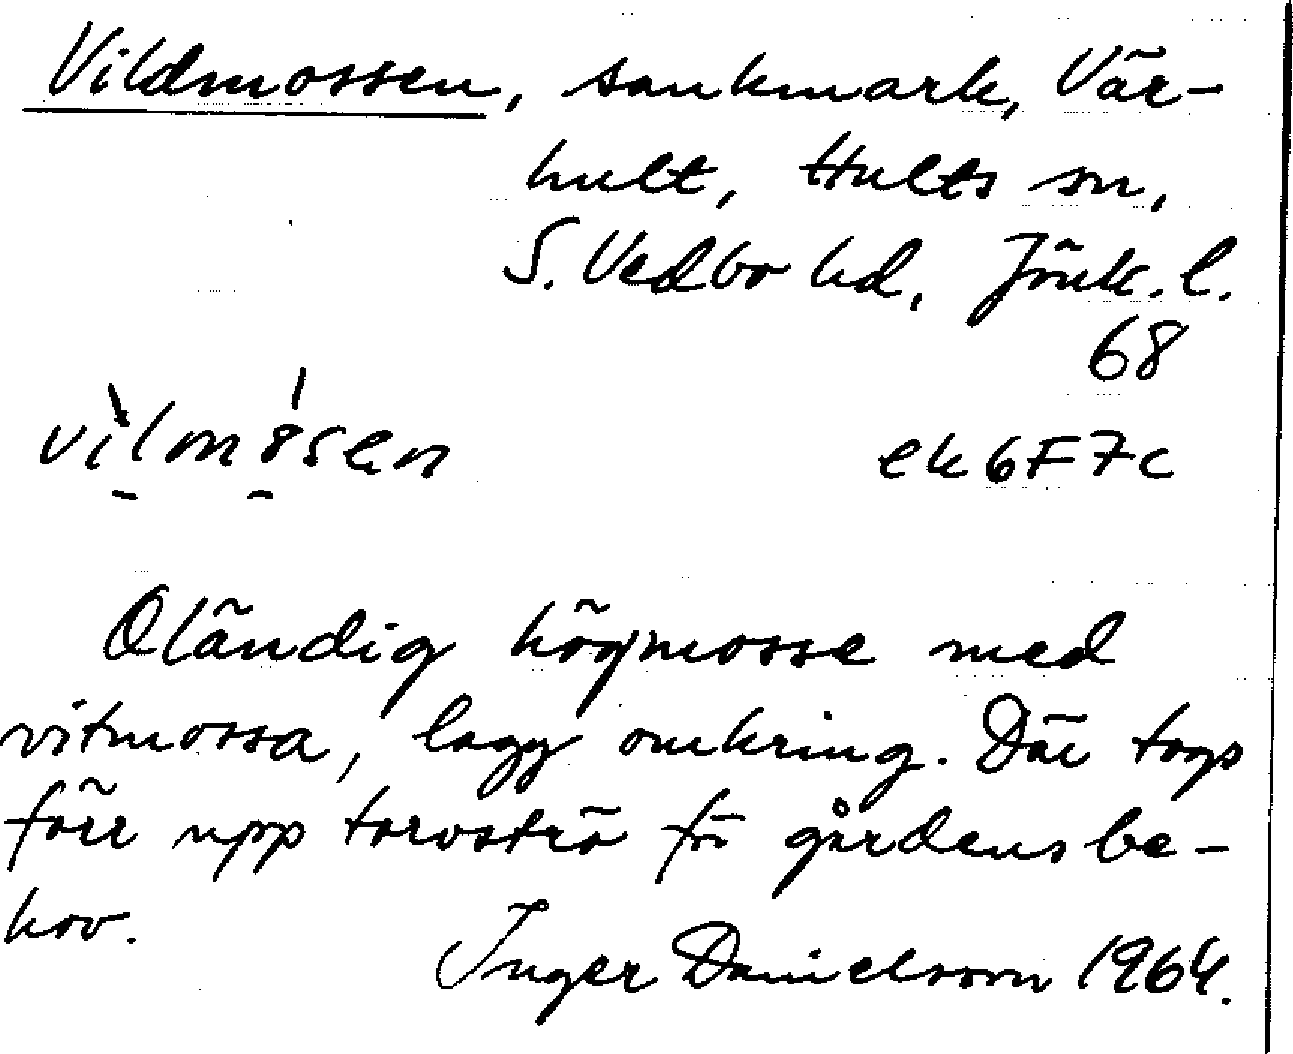 Vildmossen, sankmark, Vär-
hult, Hults sn,
S. Vedbo hd, Jönk. l.
68
vìlmósen ek6F7c
Oländig högmosse med
vitmossa, lagg omkring. Där togs
förr upp torvströ för gårdens be-
hov.
Inger Danielsson 1964.